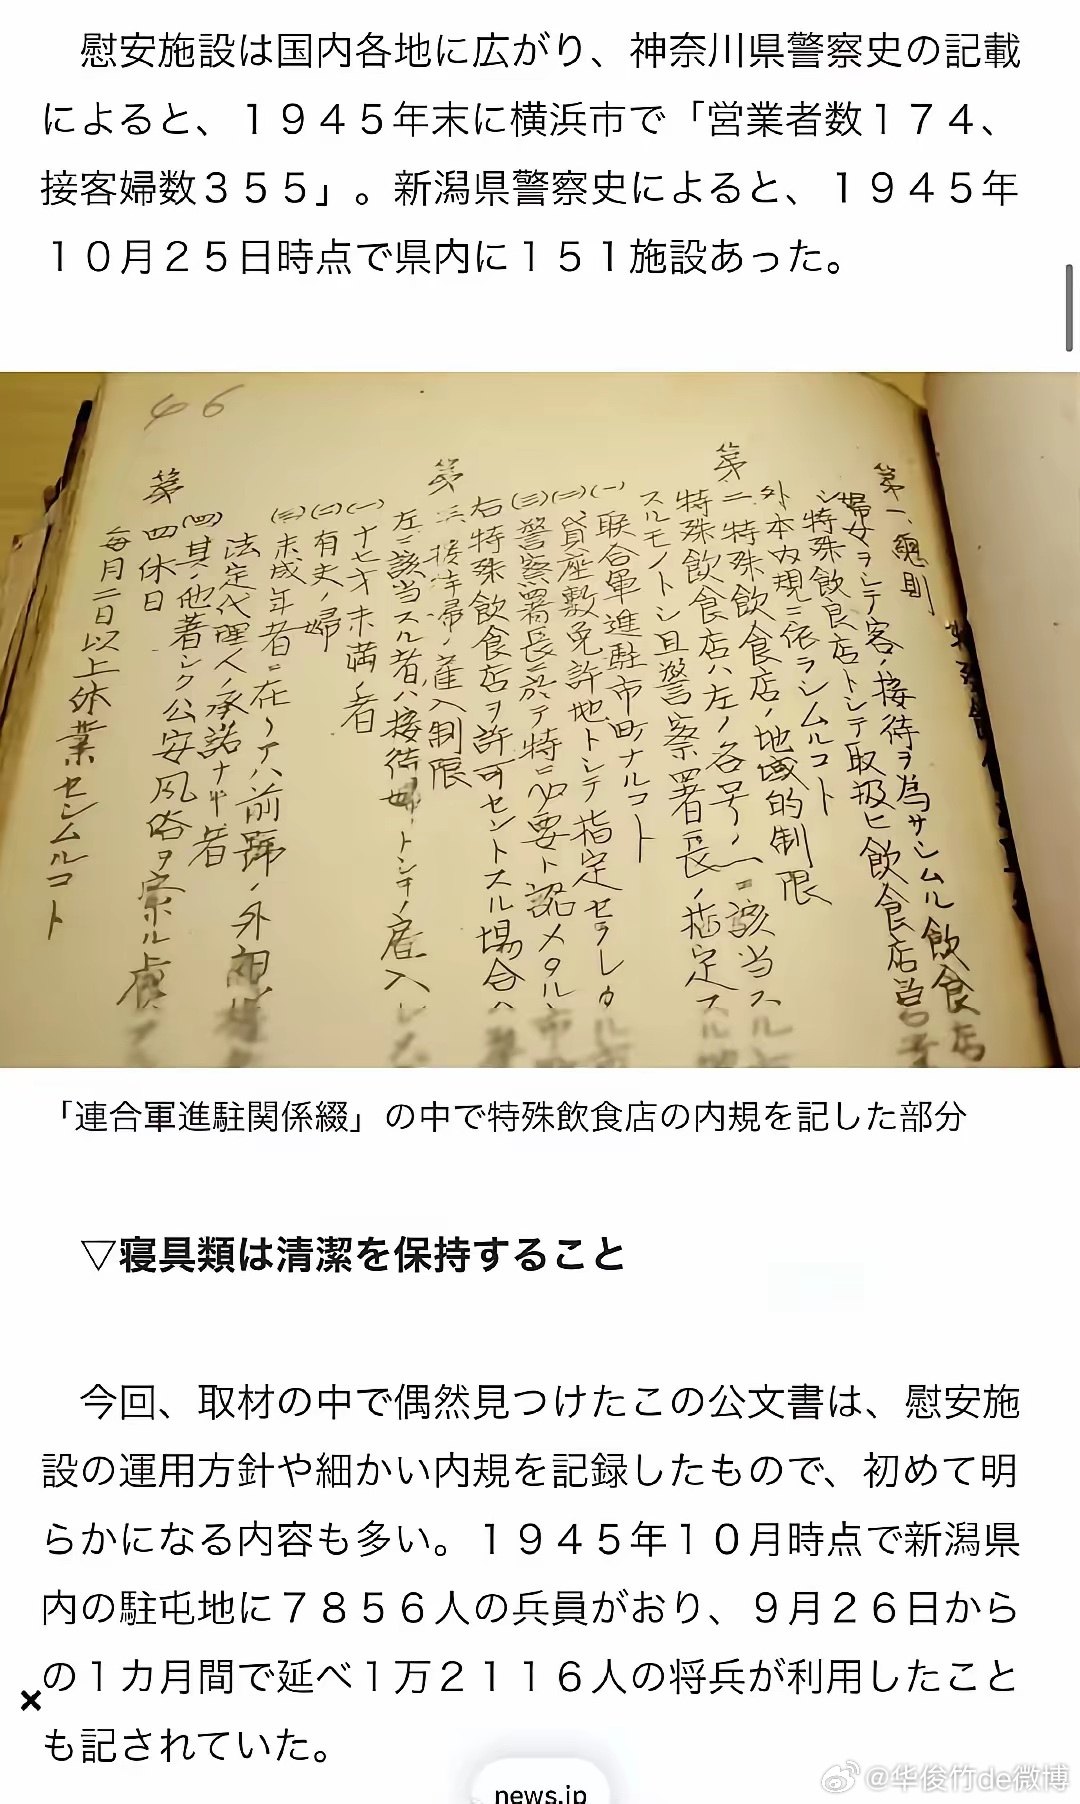 慰安施設は国内各地に広がり、神奈川県警察史の記載
によると、１９４５年末に横浜市で「営業者数１７４、
接客婦数３５５」。新潟県警察史によると、１９４５年
１０月２５日時点で県内に１５１施設あった。
46
第一、總則
婦女ヲシテ客ノ接待ヲ為サシムル飲食店
ハ特殊飲食店トシテ取扱ヒ飲食店営
外本内規ニ依ラシムルコト
第二 特殊飲食店ノ地域的制限
特殊飲食店ハ左ノ各号ノ一ニ該当スル
スルモノトシ且警察署長ノ指定スル
(一) 联合軍進駐市町ナルコト
(二) 貸座敷免許地トシテ指定セラレタル
(三) 警察署長ニ於テ特ニ必要ト認メタル
右特殊飲食店ヲ許可セントスル場合ハ
第三 接待婦ノ雇入制限
左ニ該当スル者ハ接待婦トシテ雇入レ
(一) 十七才未満ノ者
(二) 有夫ノ婦
(三) 未成年者ニ在リテハ前號ノ外
法定代理人ノ承諾ナキ者
(四) 其ノ他著シク公安風俗ヲ害スル虞
第四 休日
毎月二日以上休業セシムルコト
「連合軍進駐関係綴」の中で特殊飲食店の内規を記した部分
▽寝具類は清潔を保持すること
今回、取材の中で偶然見つけたこの公文書は、慰安施
設の運用方針や細かい内規を記録したもので、初めて明
らかになる内容も多い。１９４５年１０月時点で新潟県
内の駐屯地に７８５６人の兵員がおり、９月２６日から
の１カ月間で延べ１万２１１６人の将兵が利用したこと
も記されていた。
news.jp
@华俊竹de微博